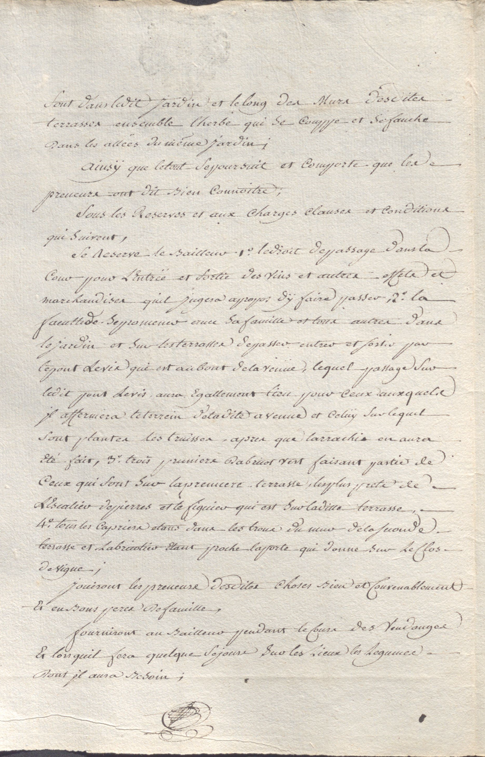 sont dans ledit Jardin et le long des Murs desdites
terrasses ensemble lherbe qui se Couppe et se fauche
dans les allées du même jardin;
Ainsy que letout sejoursuit et Comporte que les
preneurs ont dit bien Connoitre;
Sous les Reserves et aux Charges Clauses et Conditions
qui suivent,
Se Reserve le Bailleur 1° le droit depassage dans la
Cour pour Lentrée et Sortie des vins et autres effets et
marchandises quil jugera apropos dy faire passer, 2° la
faculté de sepromener avec sa famille et tous autres dans
le jardin et sur les terrasses depasser entrer et sortir par
le pont Levis qui est au bout de lavenue, lequel passage sur
ledit pont Levis aura Egallement lieu pour Ceux auxquels
jl affermera leterrein deladite avenue et Celuy sur lequel
sont plantés les truisses apres que larrachis en aura
Eté fait, 3° trois pruniers dabricot vert faisant partie de
Ceux qui sont sur lapremiere terrasse duplus prete de
Lescalier depierres et le figuier qui est sur ladite terrasse.
4° tous les Capriers etans dans les trous du mur dela seconde
terrasse et Labricotier Etant proche laporte qui donne sur Le Clos
de vigne;
Jouiront les preneurs desdites Choses bien et Convenablement
Et en bons peres de famille,
fourniront au Bailleur pendant le Cours des Vendanges
Et lorsquil fera quelque Sejour sur les Lieux les Legumes
dont jl aura Besoin;